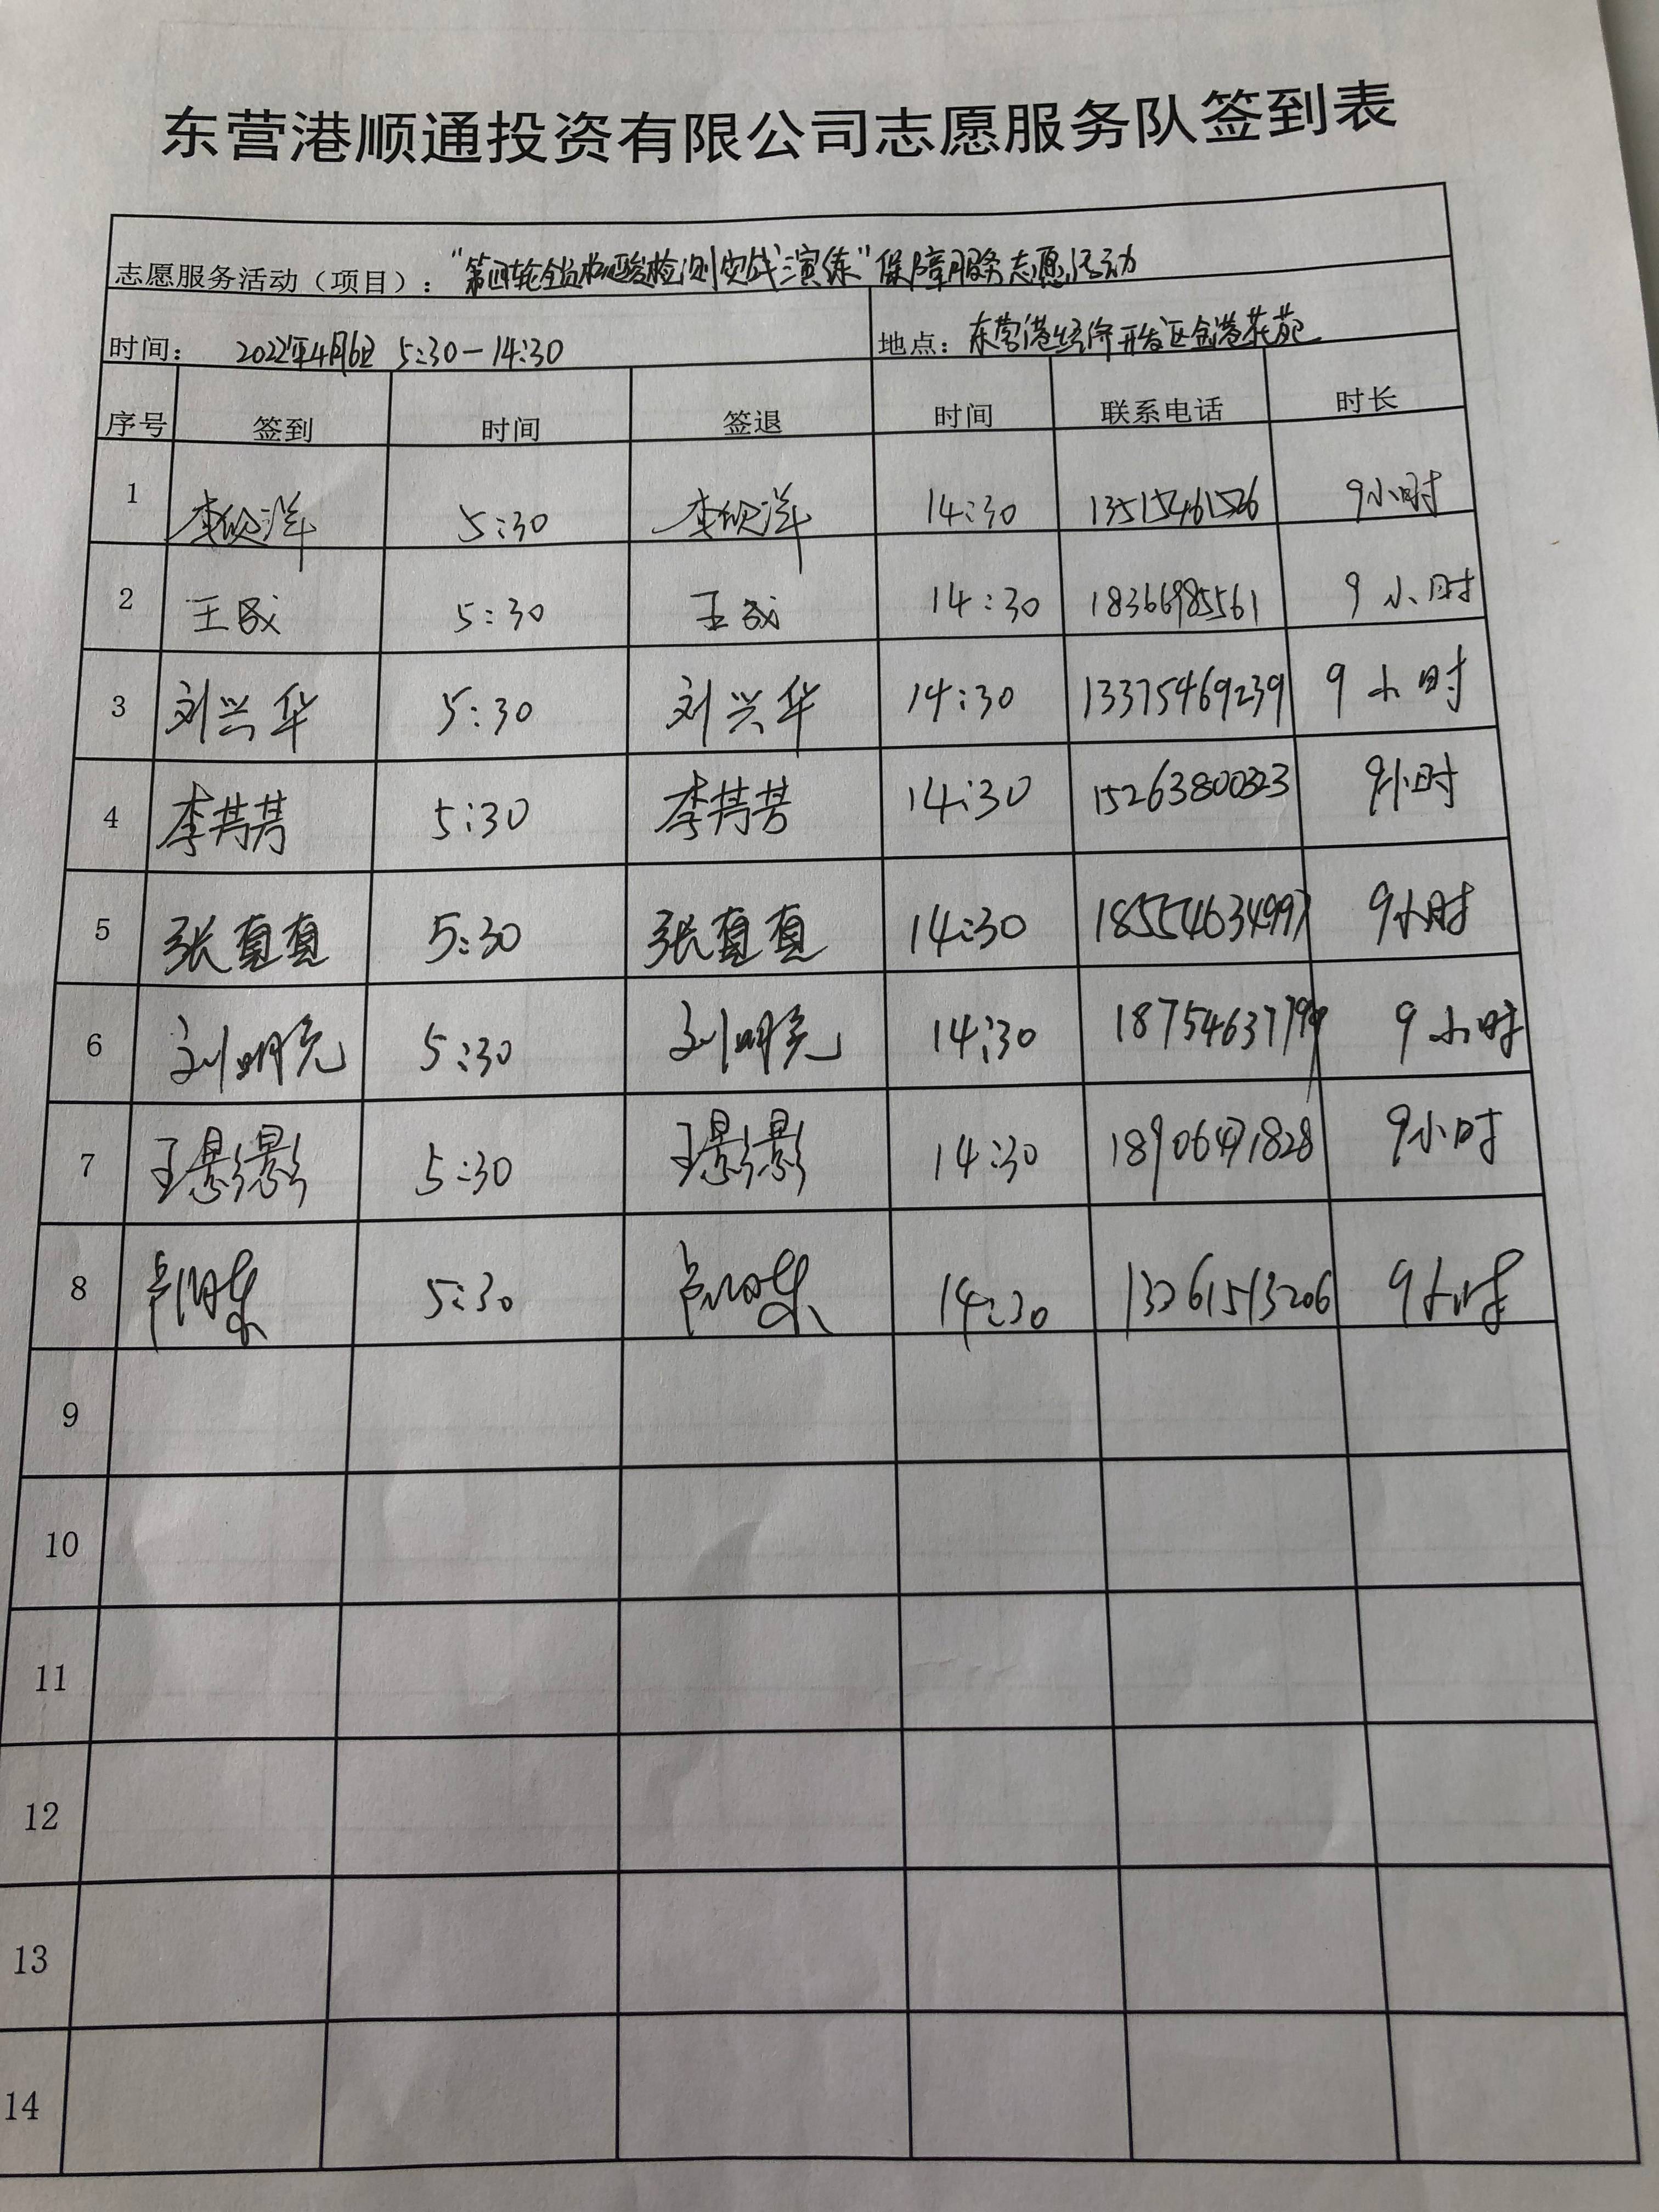 东营港顺通投资有限公司志愿服务队签到表
志愿服务活动（项目）： “第四轮全员核酸检测实战演练”保障服务志愿活动
时间： 2022年4月6日 5:30-14:30 地点：东营港经济开发区金港花苑
序号 签到 时间 签退 时间 联系电话 时长
1 李欣洋 5:30 李欣洋 14:30 13515461526 9小时
2 王成 5:30 王成 14:30 18366985561 9小时
3 刘兴华 5:30 刘兴华 14:30 13375469239 9小时
4 李芳芳 5:30 李芳芳 14:30 15263800323 9小时
5 张真真 5:30 张真真 14:30 18554634997 9小时
6 刘明亮 5:30 刘明亮 14:30 9小时
7 王影影 5:30 王影影 14:30 9小时
8 5:30 14:30 13261513206 9小时
9
10
11
12
13
14